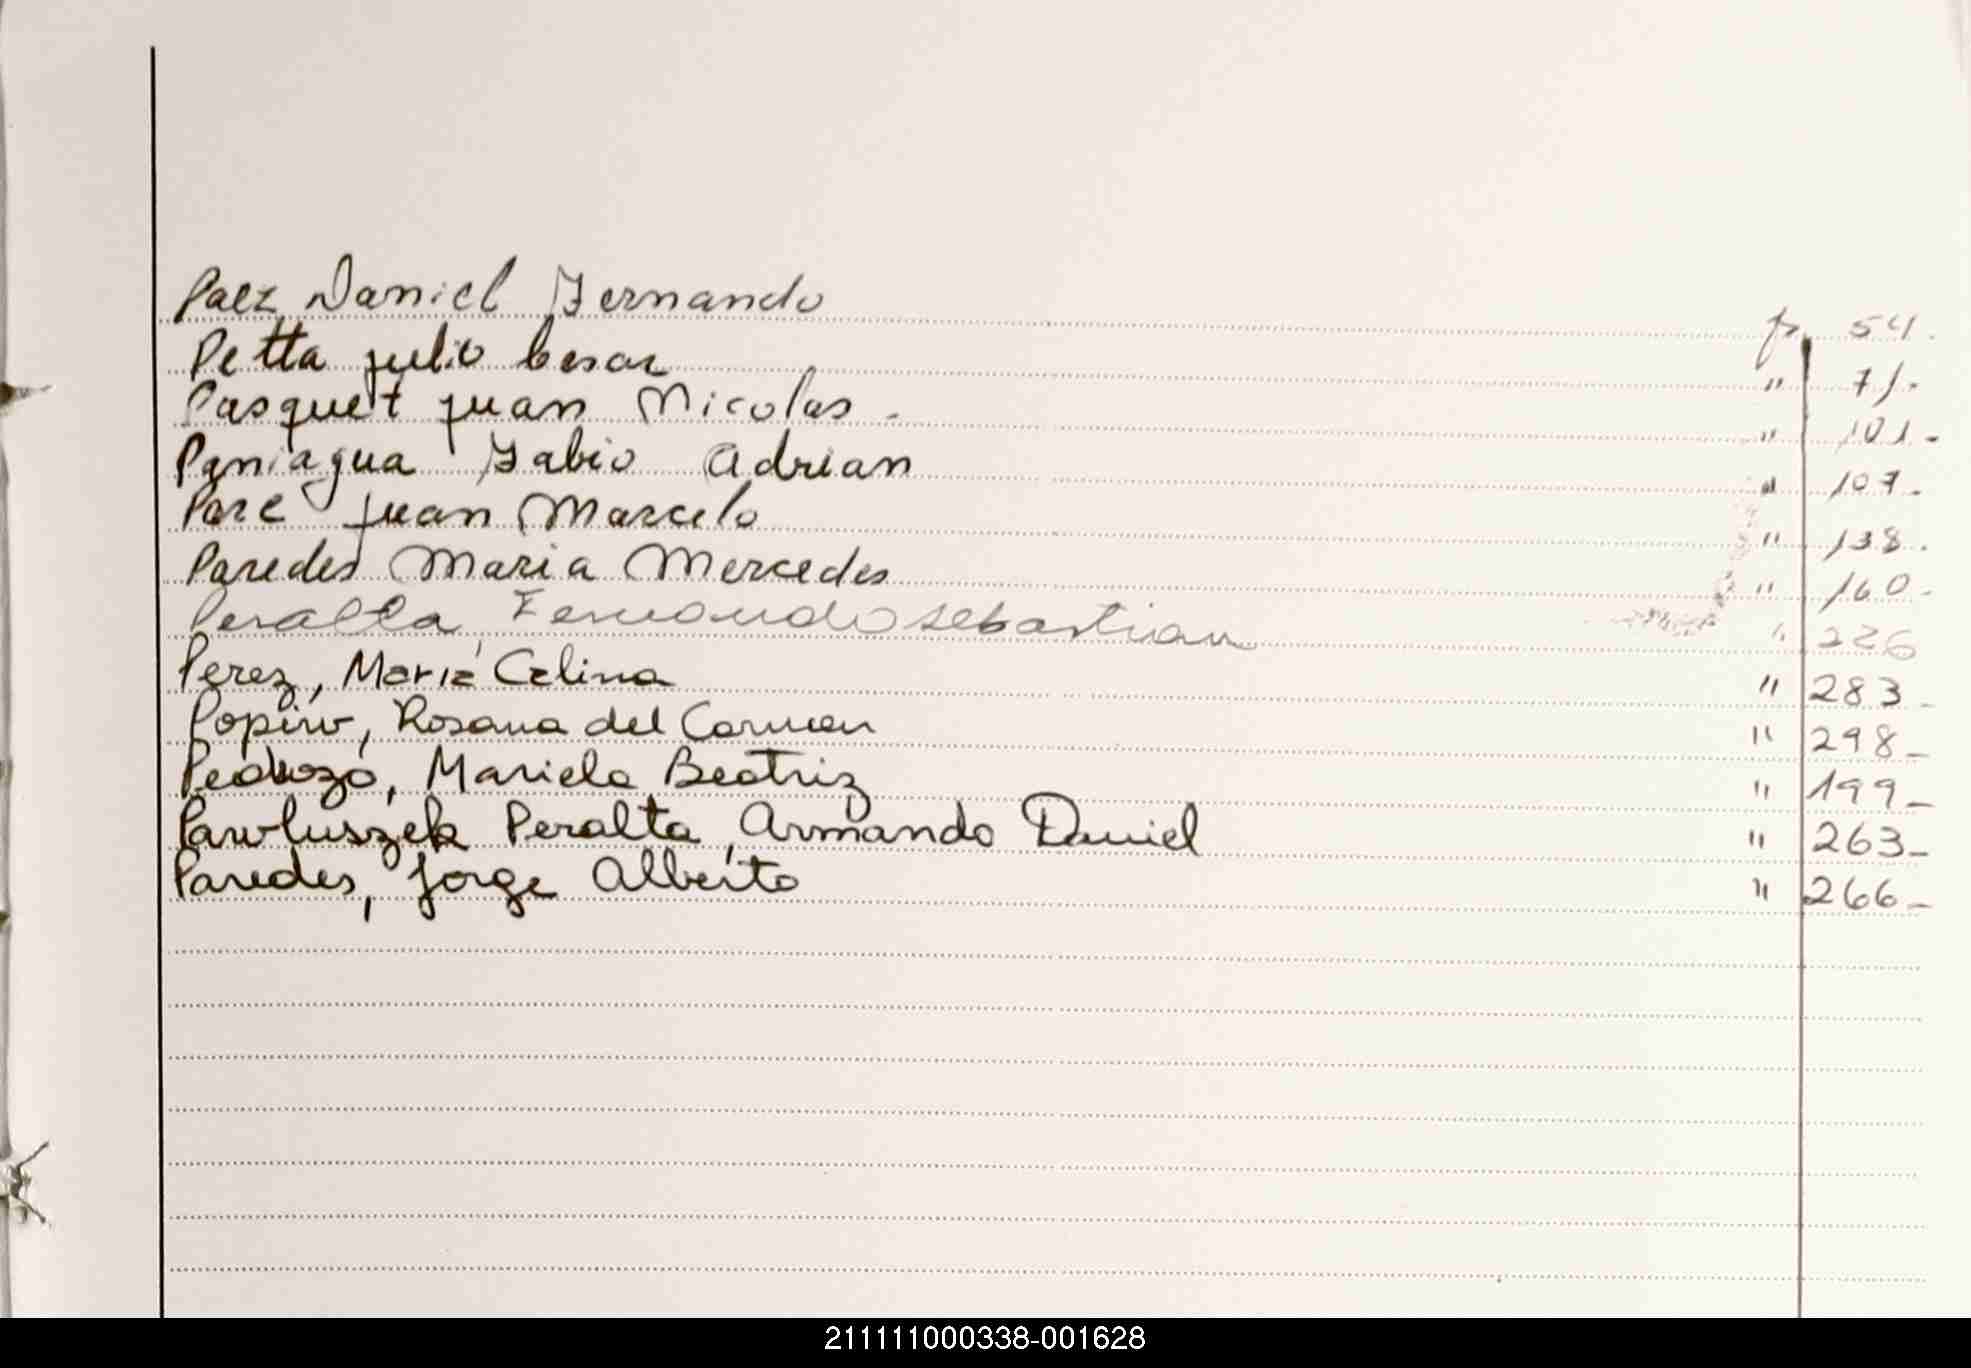 Paez Daniel Fernando fs 54.
Petta Julio Cesar " 71.
Pasquet Juan Nicolas. " 101.
Paniagua Fabio Adrian " 107.
Pare Juan Marcelo " 138.
Paredes Maria Mercedes " 160.
Peralta, Fernando Sebastian " 226
Perez, María Celina " 283.
Popiw, Rosana del Carmen " 298_
Pedrozo, Mariela Beatriz " 199_
Pawluszek Peralta, Armando Daniel " 263_
Paredes, Jorge Alberto " 266_
211111000338-001628